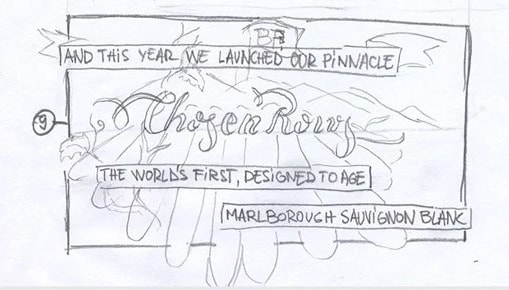 AND THIS YEAR WE LAUNCHED OUR PINNACLE
9
Chosen Rows
THE WORLD'S FIRST, DESIGNED TO AGE
MARLBOROUGH SAUVIGNON BLANC